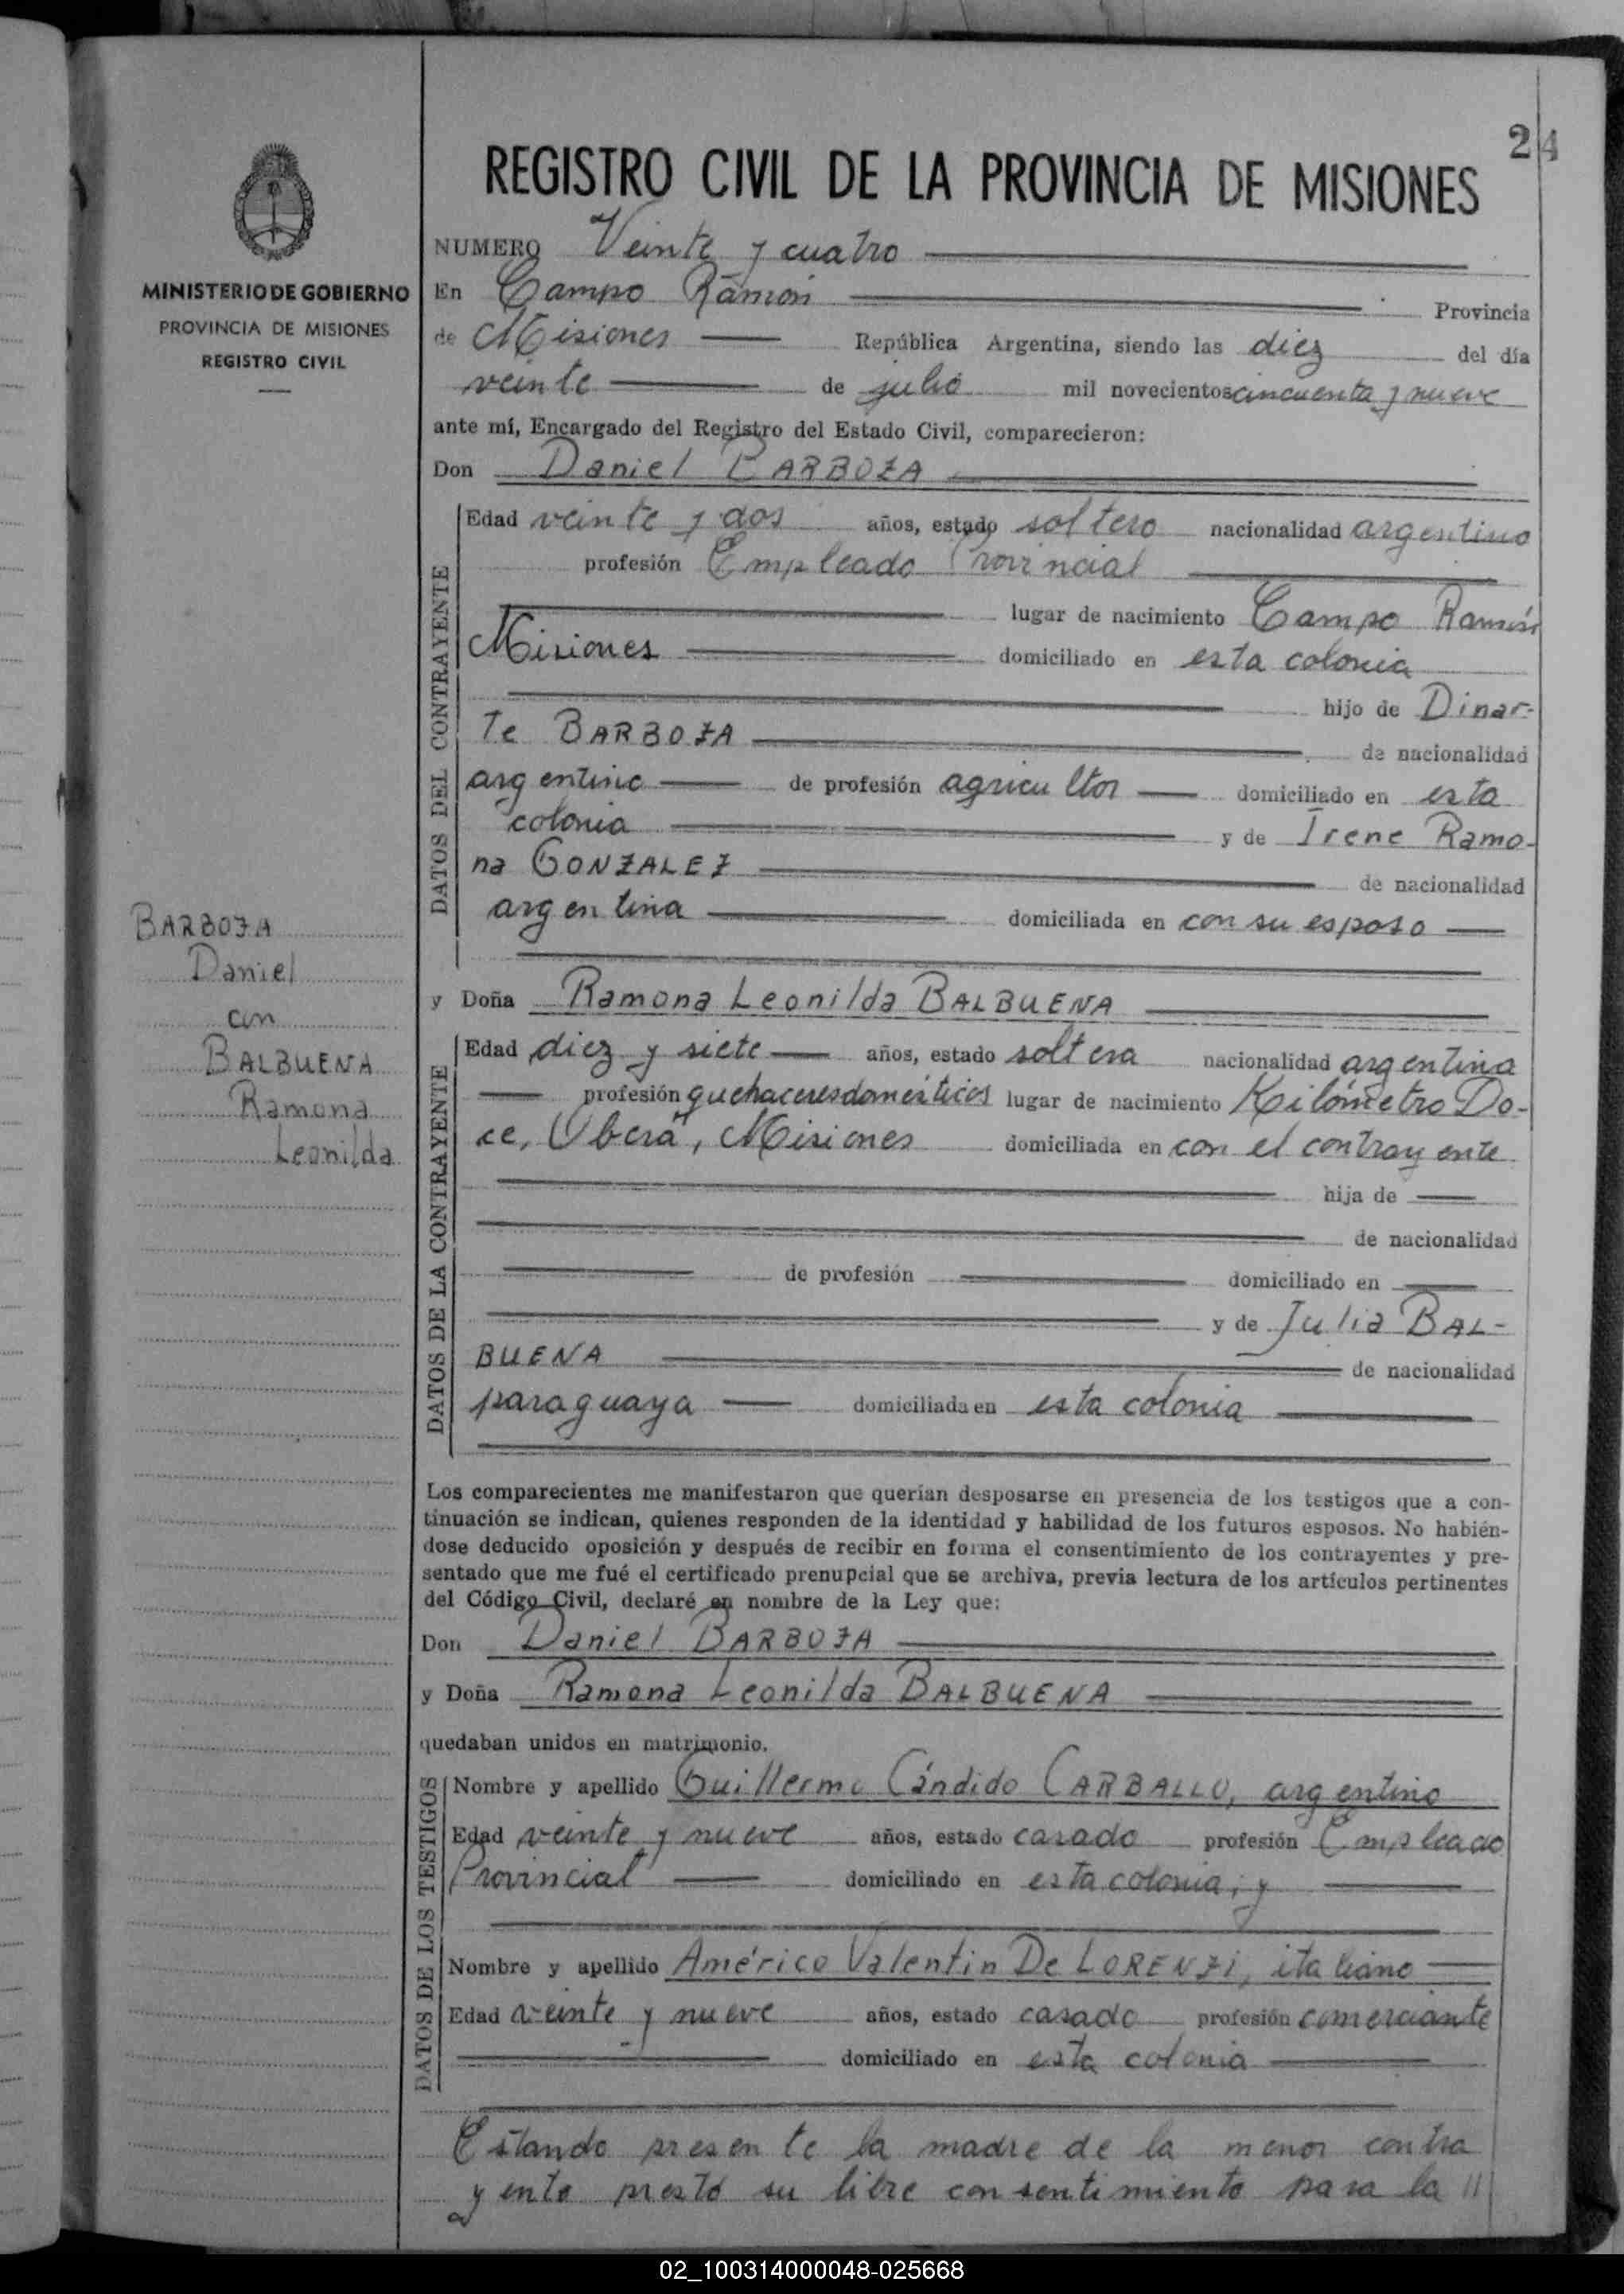 24
REGISTRO CIVIL DE LA PROVINCIA DE MISIONES
MINISTERIO DE GOBIERNO
PROVINCIA DE MISIONES
REGISTRO CIVIL
NUMERO Veinte y cuatro
En Campo Ramón Provincia
de Misiones República Argentina, siendo las diez del día
veinte de julio mil novecientos cincuenta y nueve
ante mí, Encargado del Registro del Estado Civil, comparecieron:
Don Daniel BARBOZA
DATOS DEL CONTRAYENTE
Edad veinte y dos años, estado soltero nacionalidad argentino
profesión Empleado Provincial
lugar de nacimiento Campo Ramón
Misiones domiciliado en esta colonia
hijo de Dinar-
te BARBOZA de nacionalidad
argentino de profesión agricultor domiciliado en esta
colonia y de Irene Ramo-
na GONZALEZ de nacionalidad
argentina domiciliada en con su esposo
BARBOZA
Daniel
con
BALBUENA
Ramona
Leonilda
y Doña Ramona Leonilda BALBUENA
DATOS DE LA CONTRAYENTE
Edad diez y siete años, estado soltera nacionalidad argentina
profesión quehaceres domésticos lugar de nacimiento Kilómetro Do-
ce, Oberá, Misiones domiciliada en con el contrayente
hija de
de nacionalidad
de profesión domiciliado en
y de Julia BAL-
BUENA de nacionalidad
paraguaya domiciliada en esta colonia
Los comparecientes me manifestaron que querían desposarse en presencia de los testigos que a con-
tinuación se indican, quienes responden de la identidad y habilidad de los futuros esposos. No habién-
dose deducido oposición y después de recibir en forma el consentimiento de los contrayentes y pre-
sentado que me fué el certificado prenupcial que se archiva, previa lectura de los artículos pertinentes
del Código Civil, declaré en nombre de la Ley que:
Don Daniel BARBOZA
y Doña Ramona Leonilda BALBUENA
quedaban unidos en matrimonio.
DATOS DE LOS TESTIGOS
Nombre y apellido Guillermo Cándido CARBALLO, argentino
Edad veinte y nueve años, estado casado profesión Empleado
Provincial domiciliado en esta colonia; y
Nombre y apellido Américo Valentin De LORENZI, italiano
Edad veinte y nueve años, estado casado profesión comerciante
domiciliado en esta colonia
Estando presente la madre de la menor contra
yente prestó su libre consentimiento para la //
02_100314000048-025668